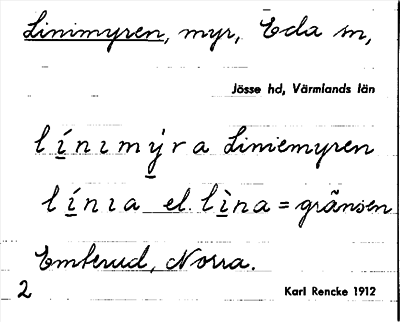 Linimyren, myr, Eda sn,
Jösse hd, Värmlands län
l í̱ n ı m ý̱ r a Liniemyren
l í̱ n ı a el. l ì̱ n a = gränsen
Emterud, Norra.
2
Karl Rencke 1912